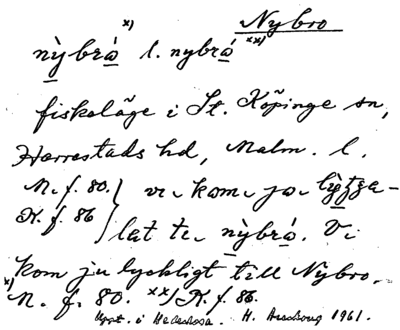 Nybro
nỳbrå x) l. nybrå xx)
fiskeläge i St. Köpinge sn,
Herrestads hd, Malm. l.
M. f. 80. } vi kom ju
K. f. 86 } lat te nỳbrå. Vi
kom ju lyckligt till Nybro.
x) M. f. 80. xx) K. f. 86.
Uppt. i H. 1961.